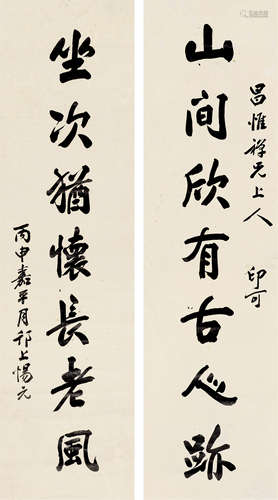 昌惟禅兄上人
印可
山间欣有古心跡
坐次猶懷長老風
丙申嘉平月邗上惕元